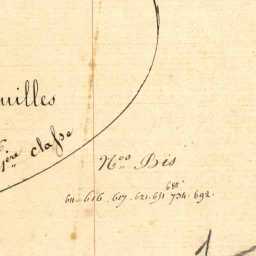 uilles
1ère classe
Nos Bis
688
611. 616. 617. 621. 651 734. 692.